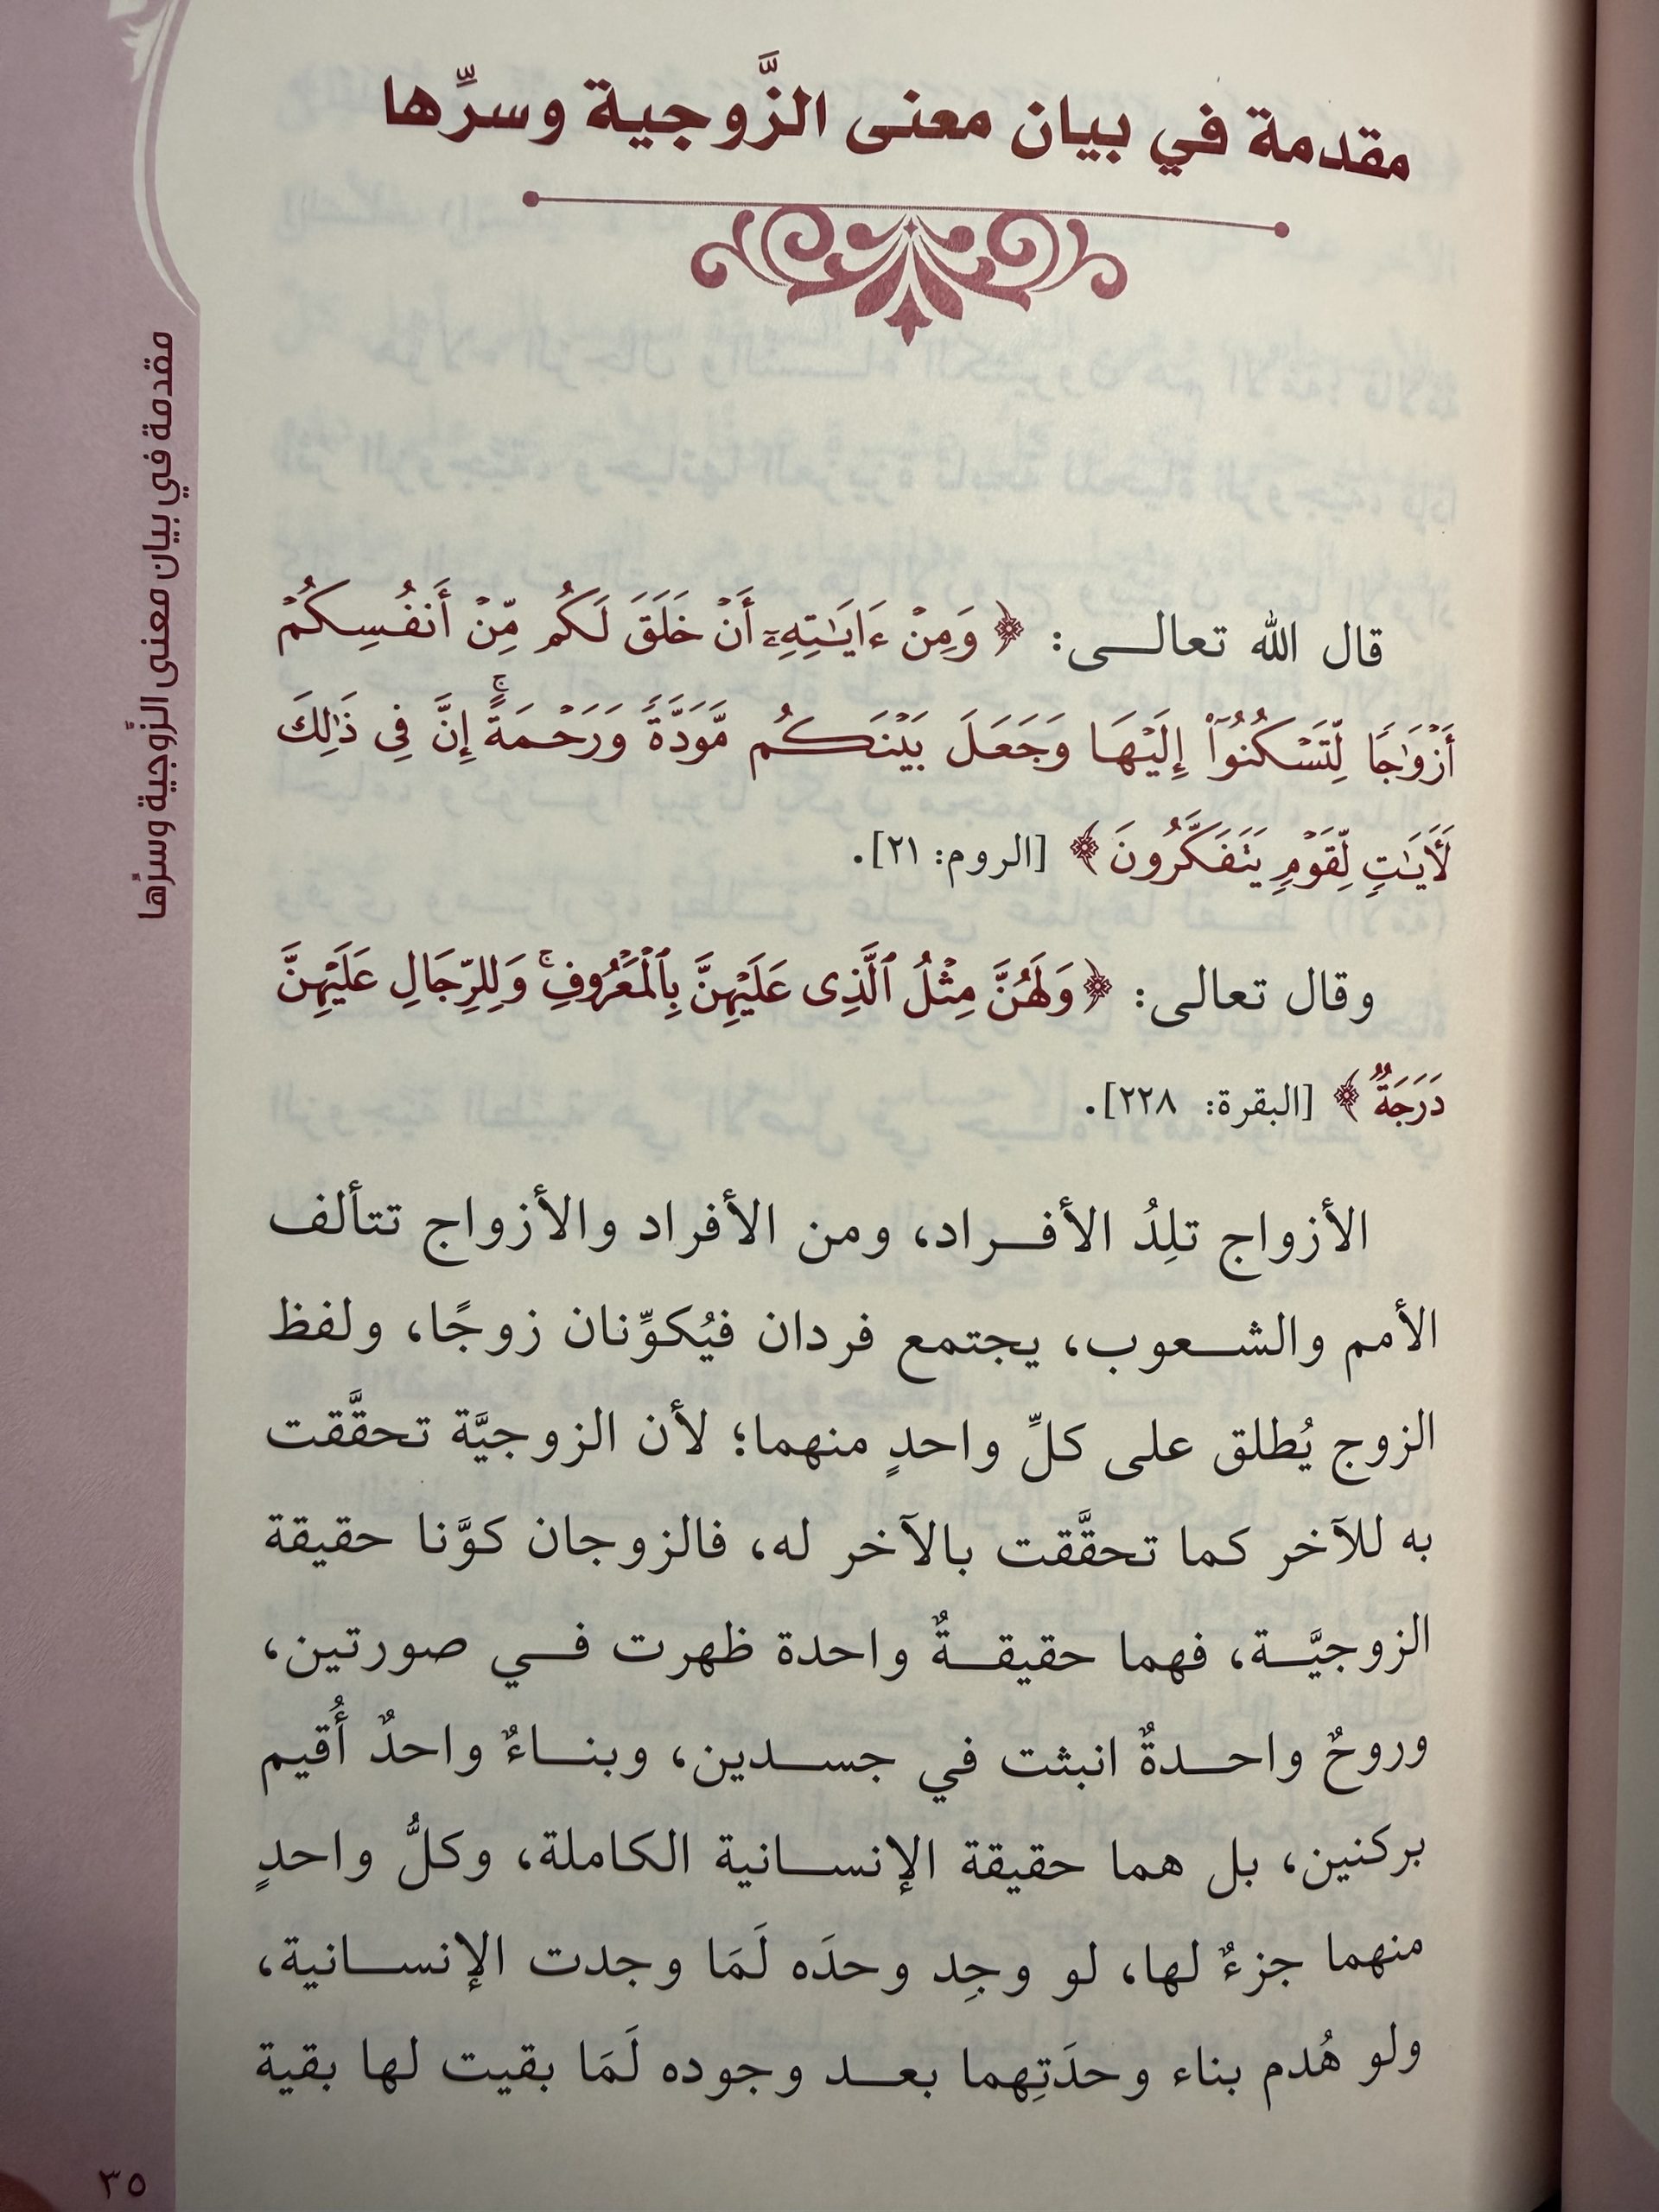 مقدمة في بيان معنى الزَّوجية وسرِّها
مقدمة في بيان معنى الزَّوجية وسرِّها
قال الله تعالـى: ﴿وَمِنْ ءَايَٰتِهِۦٓ أَنْ خَلَقَ لَكُم مِّنْ أَنفُسِكُمْ
أَزْوَٰجًا لِّتَسْكُنُوٓا۟ إِلَيْهَا وَجَعَلَ بَيْنَكُم مَّوَدَّةً وَرَحْمَةً ۚ إِنَّ فِى ذَٰلِكَ
لَأٓيَٰتٍ لِّقَوْمٍ يَتَفَكَّرُونَ﴾ [الروم: ٢١].
وقال تعالى: ﴿وَلَهُنَّ مِثْلُ ٱلَّذِى عَلَيْهِنَّ بِٱلْمَعْرُوفِ ۚ وَلِلرِّجَالِ عَلَيْهِنَّ
دَرَجَةٌ﴾ [البقرة: ٢٢٨].
الأزواج تلِدُ الأفـراد، ومن الأفراد والأزواج تتألف
الأمم والشـعوب، يجتمع فردان فيُكوِّنان زوجًا، ولفظ
الزوج يُطلق على كلِّ واحدٍ منهما؛ لأن الزوجيَّة تحقَّقت
به للآخر كما تحقَّقت بالآخر له، فالزوجان كوَّنا حقيقة
الزوجيَّـة، فهما حقيقـةٌ واحدة ظهرت فـي صورتين،
وروحٌ واحـدةٌ انبثت في جسـدين، وبنـاءٌ واحدٌ أُقيم
بركنين، بل هما حقيقة الإنسـانية الكاملة، وكلُّ واحدٍ
منهما جزءٌ لها، لو وجِد وحدَه لَمَا وجدت الإنسـانية،
ولو هُدم بناء وحدَتِهما بعـد وجوده لَمَا بقيت لها بقية
٣٥